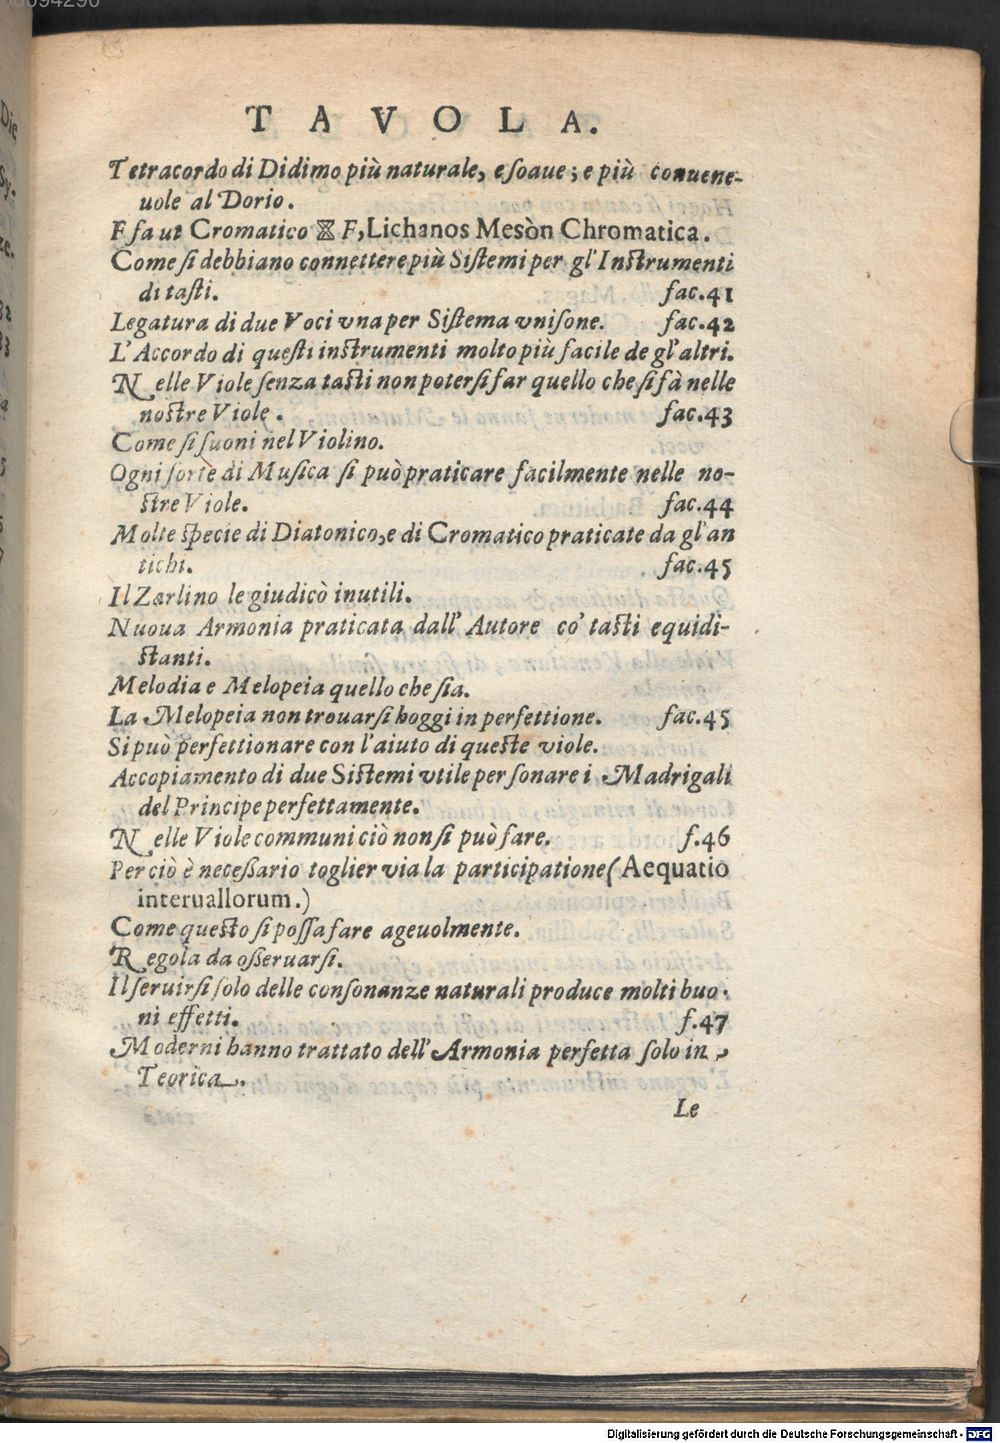 TAVOLA.
Tetracordo di Didimo più naturale, e soaue; e più conuene-
uole al Dorio.
F fa ut Cromatico F, Lichanos Mesòn Chromatica.
Come si debbiano connettere più Sistemi per gl'Instrumenti
di tasti. fac.41
Legatura di due Voci vna per Sistema vnisone. fac.42
L'Accordo di questi instrumenti molto più facile de gl'altri.
Nelle Viole senza tasti non potersi far quello che si fà nelle
nostre Viole. fac.43
Come si suoni nel Violino.
Ogni sorte di Musica si può praticare facilmente nelle no-
stre Viole. fac.44
Molte specie di Diatonico, e di Cromatico praticate da gl'an
tichi. fac.45
Il Zarlino le giudicò inutili.
Nuoua Armonia praticata dall'Autore co' tasti equidi-
stanti.
Melodia e Melopeia quello che sia.
La Melopeia non trouarsi hoggi in perfettione. fac.45
Si può perfettionare con l'aiuto di queste viole.
Accopiamento di due Sistemi vtile per sonare i Madrigali
del Principe perfettamente.
Nelle Viole communi ciò non si può fare. f.46
Per ciò è necessario toglier via la participatione (Aequatio
interuallorum.)
Come questo si possa fare ageuolmente.
Regola da osseruarsi.
Il seruirsi solo delle consonanze naturali produce molti buo-
ni effetti. f.47
Moderni hanno trattato dell'Armonia perfetta solo in
Teorica.
Le
Digitalisierung gefördert durch die Deutsche Forschungsgemeinschaft - DFG